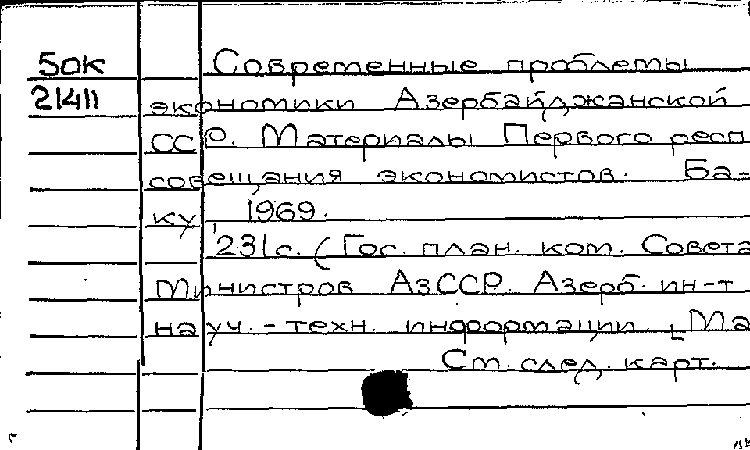 50к Современные проблемы
21411 экономики Азербайджанской
ССР. Материалы Первого респ
совещания экономистов. Ба-
ку, 1969.
231с. (Гос. план. ком. Совета
Министров АзССР. Азерб. ин-т
науч.-техн. информации
См. след. карт.